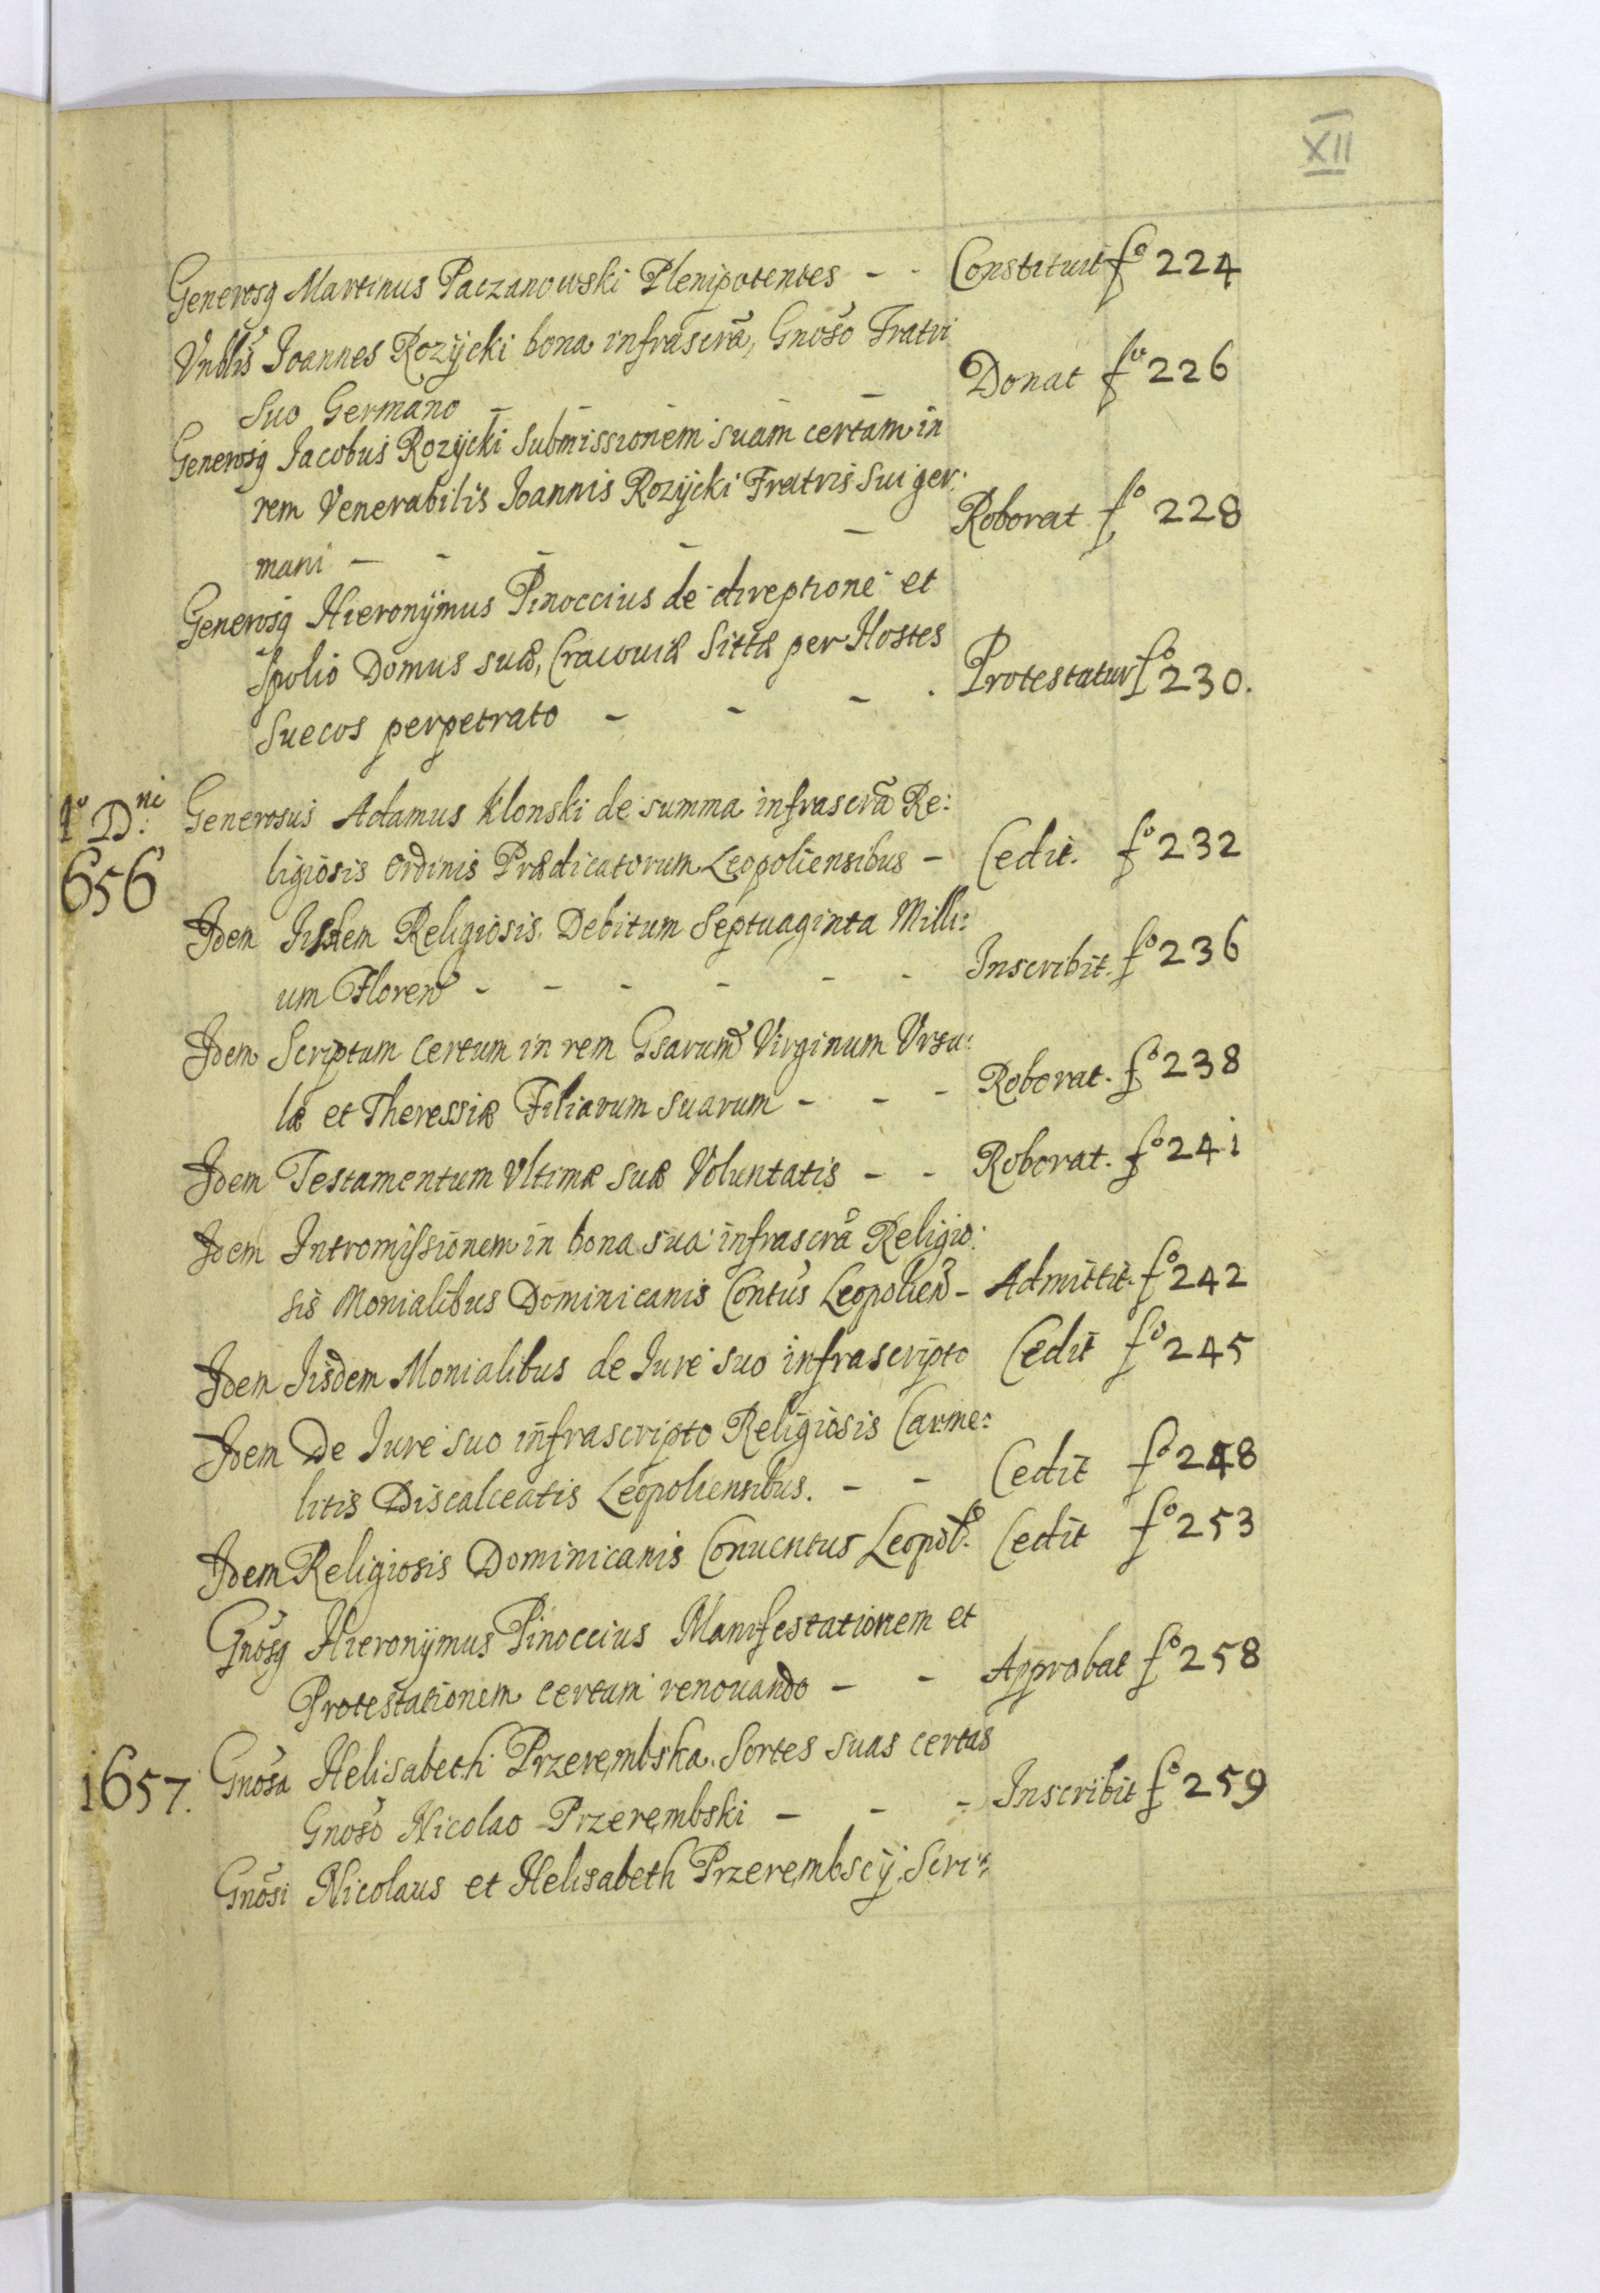 XII
Generosq Martinus Paczanowski Plenipotentes - - Constituit fo 224
Vnblis Joannes Rozycki bona infrascra, Gnoso Fratri
suo Germano - - - - Donat fo 226
Generosq Jacobus Rozycki submissionem suam certam in
rem Venerabilis Joannis Rozycki Fratris sui ger:
mani - - - - - Roborat fo 228
Generosq Hieronymus Pinoccius de direptione et
spolio Domus suæ, Cracouiæ sittæ per Hostes
Suecos perpetrato - - - - Protestatur fo 230.
Ao Dni Generosus Adamus Klonski de summa infrascra Re:
656 ligiosis Ordinis Prædicatorum Leopoliensibus - Cedit. fo 232
Idem Iisdem Religiosis Debitum Septuaginta Milli:
um Floren - - - - - - Inscribit. fo 236
Idem Scriptum certum in rem Gsarum Virginum Vrsu:
læ et Theressiæ Filiarum suarum - - - Roborat. fo 238
Idem Testamentum Vltimæ suæ Voluntatis - - Roborat. fo 241
Idem Intromissionem in bona sua infrascra Religio:
sis Monialibus Dominicanis Contus Leopolien - Admittit. fo 242
Idem Iisdem Monialibus de Iure suo infrascripto Cedit fo 245
Idem De Iure suo infrascripto Religiosis Carme:
litis Discalceatis Leopoliensibus. - - Cedit fo 248
Idem Religiosis Dominicanis Conuentus Leopol. Cedit fo 253
Gnosq Hieronymus Pinoccius Manifestationem et
Protestationem certam renouando - - Approbat fo 258
1657. Gnosa Helisabeth Przerembska Sortes suas certas
Gnoso Nicolao Przerembski - - - Inscribit fo 259
Gnosi Nicolaus et Helisabeth Przerembscy, Scri: